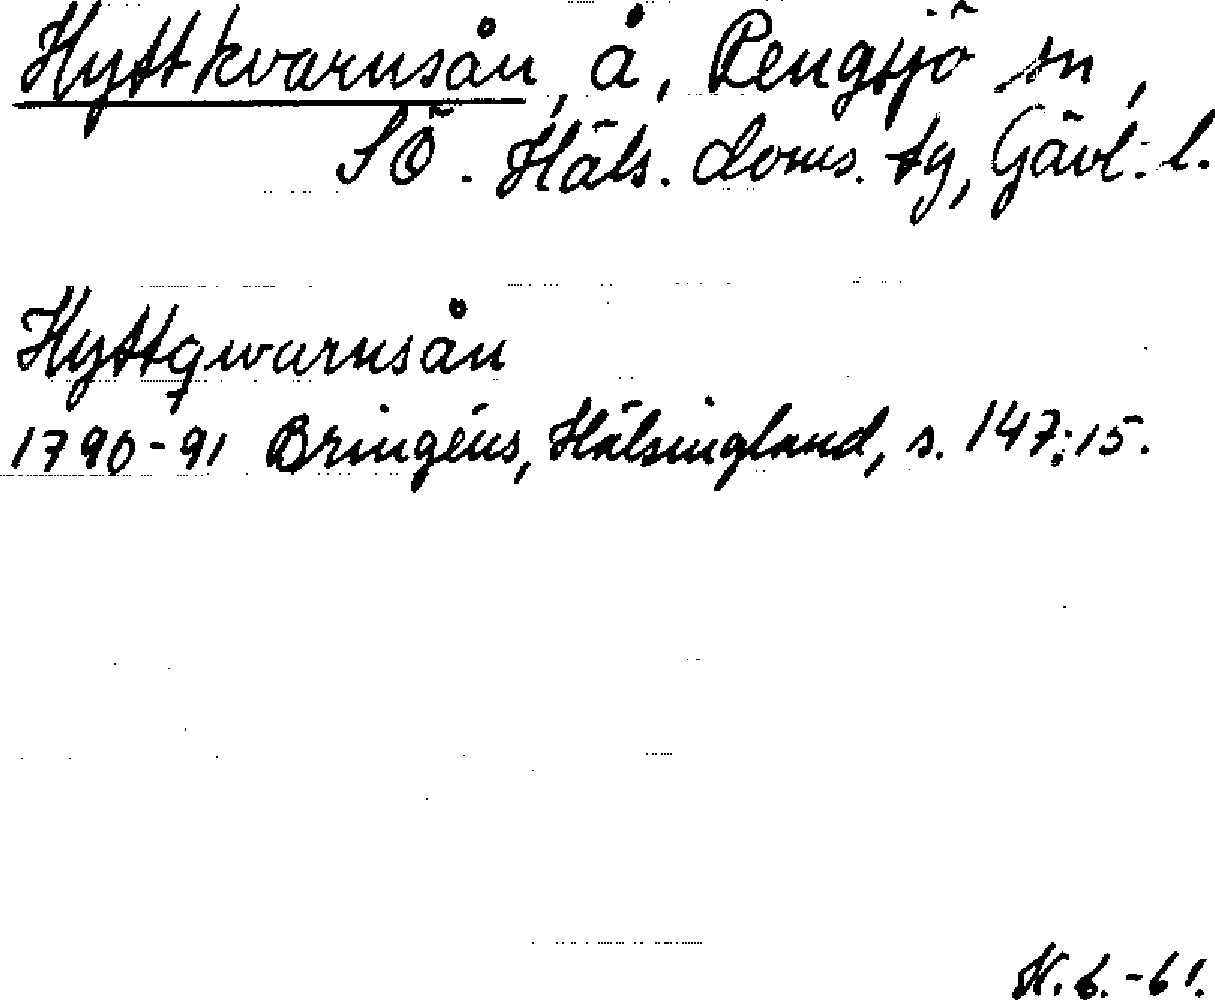 Hyttkvarnsån, å, Rengsjö sn,
SÖ. Häls. doms. tg, Gävl. l.
Hyttqwarnsån
1790-91 Bringéus, Hälsingland, s. 147:15.
H.b.-61.